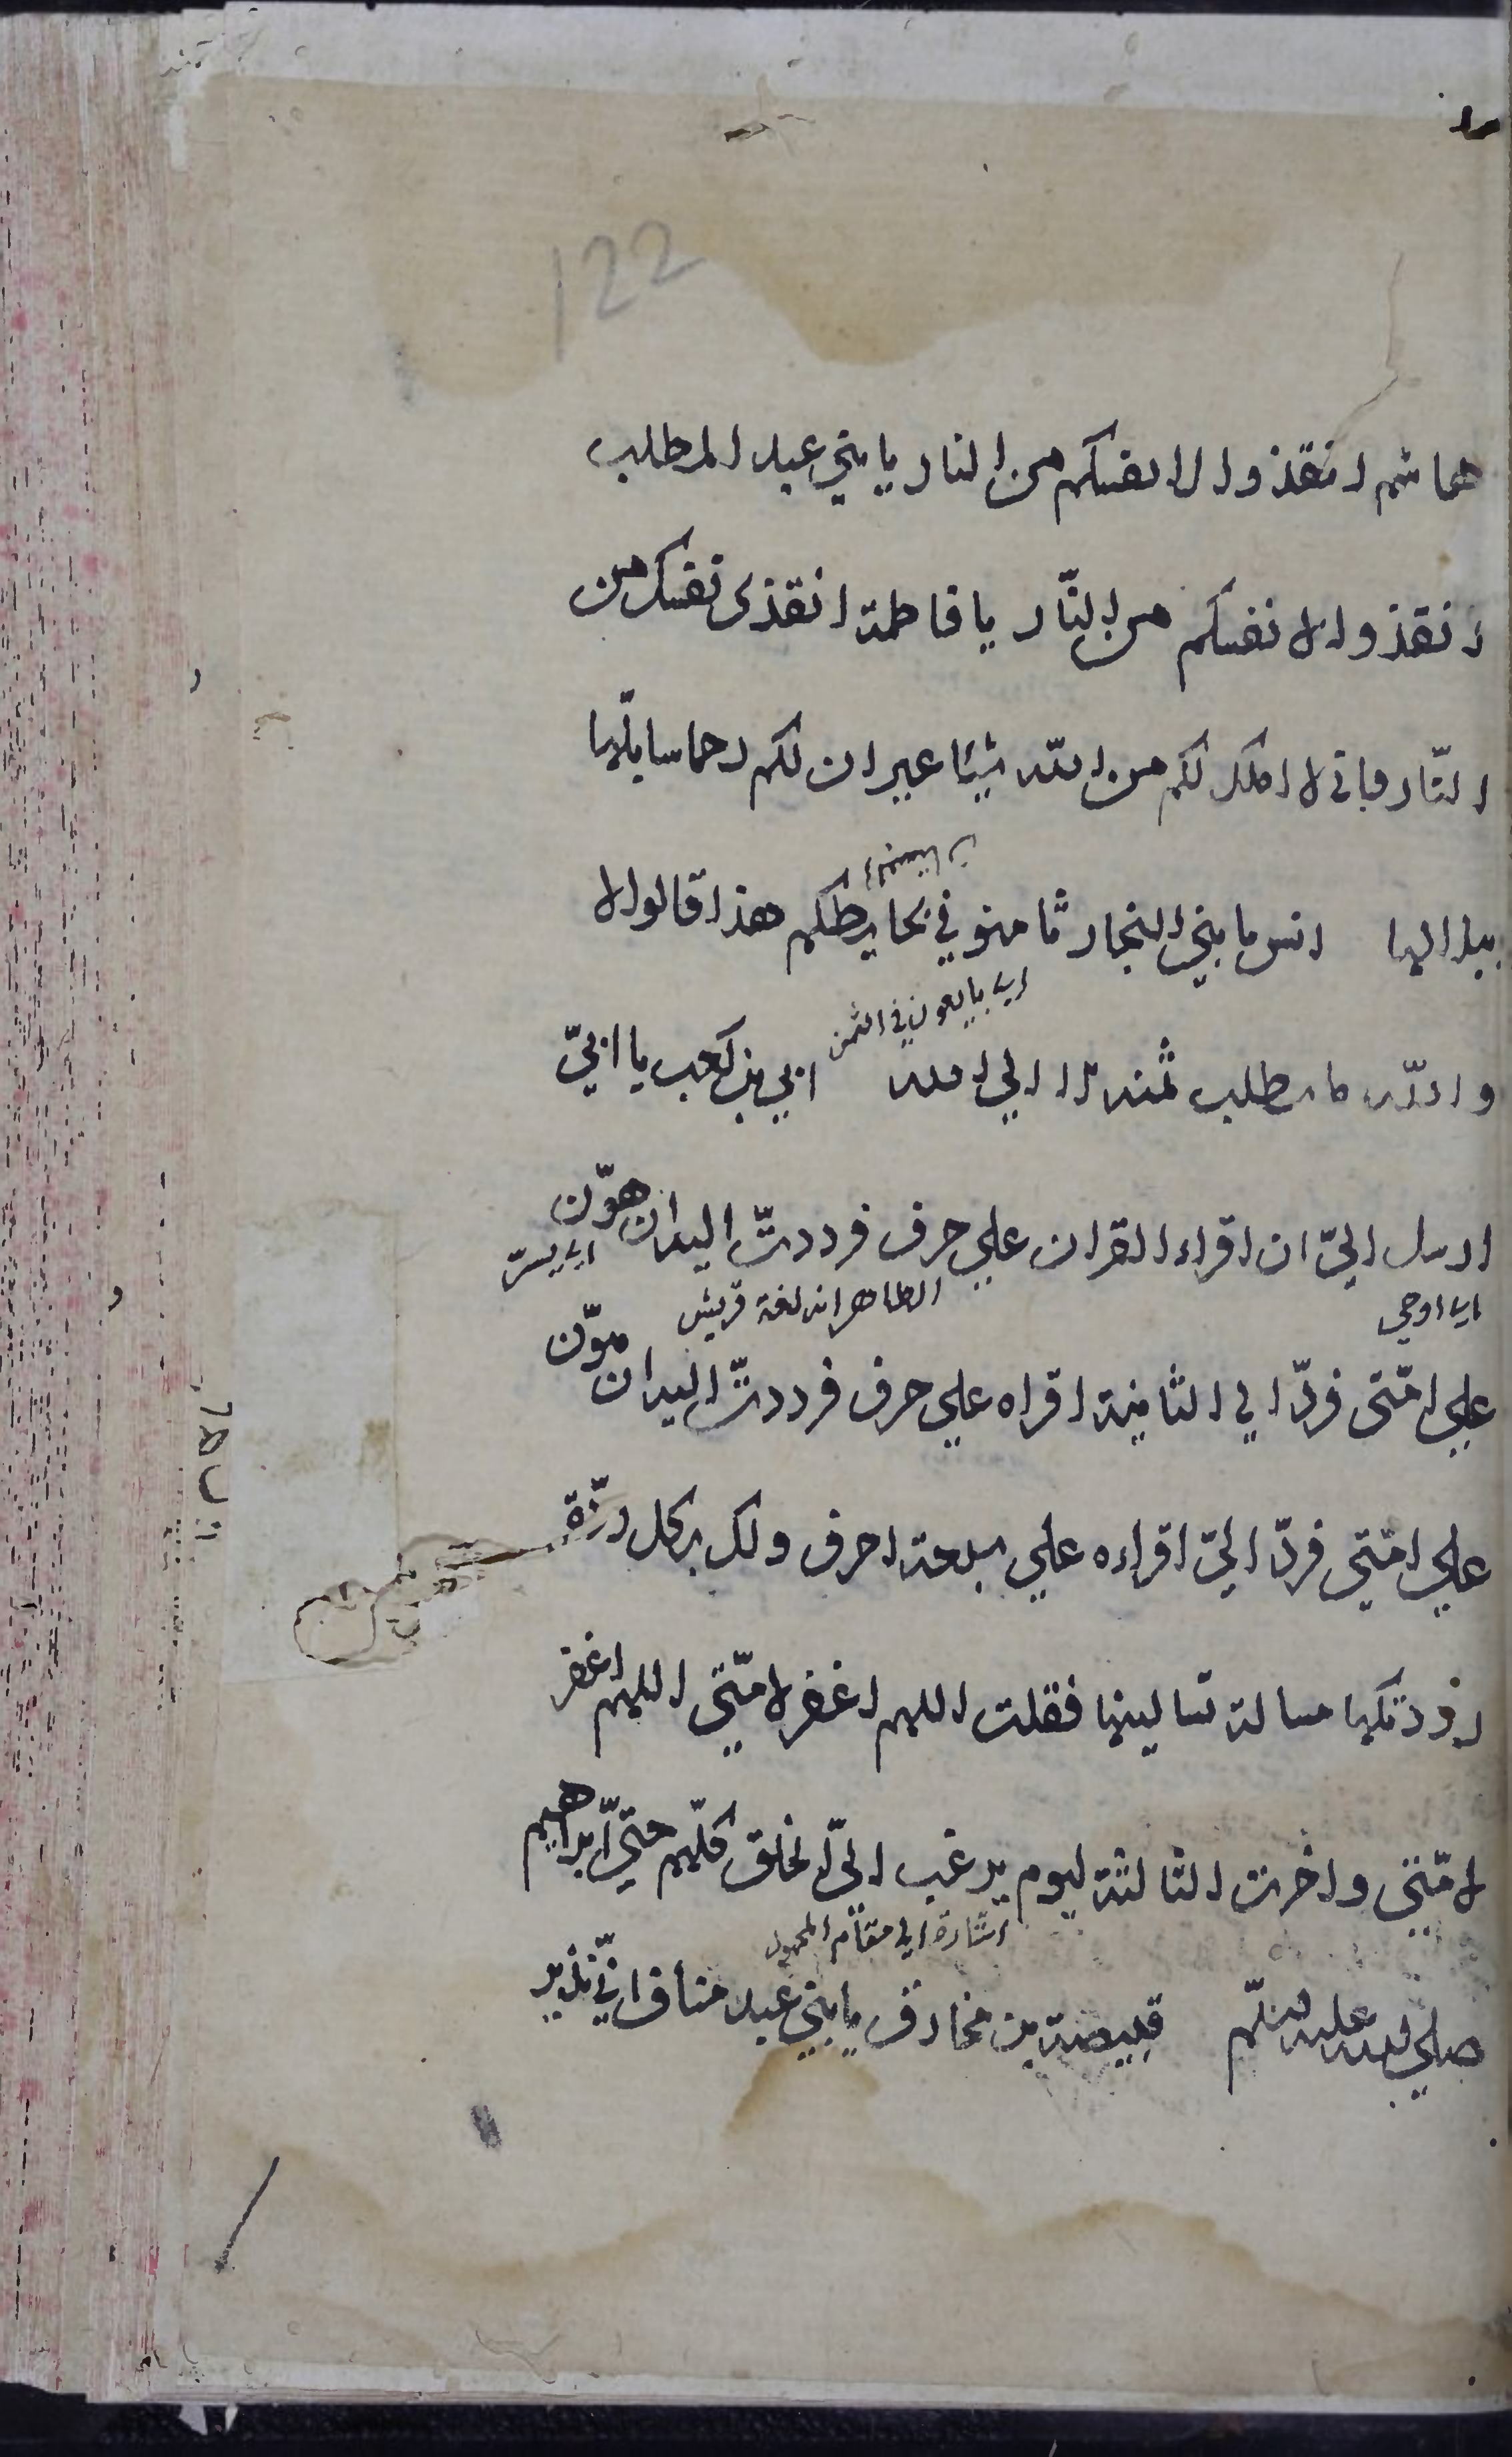 122
هاشم انقذوا الانفسكم من النار يا بني عبد المطلب
انقذوا الانفسكم من النّار يا فاطمة انقذى نفسك من
النّار فانى لا املك لكم من اللّه شيئا غير ان لكم رحما سابلّها
ببلالها انس يا بني النجار ثامنوني بحايطكم هذا قالوا لا
اي بايعوني في الثمن
واللّه ما نطلب ثمنه الا الي الله ابي بن كعب يا ابيّ
ارسل اليّ ان اقراء القران علي حرف فرددتّ اليه ان هوّن
اي اوحي الظاهر انه لغة قريش اي يسر
علي امّتى فردّ الي الثانية اقراه علي حرف فرددتّ اليه ان هوّن
علي امّتي فردّ اليّ اقراءه علي سبعة احرف ولك بكل ردّة
رددتكها مسالة تسالينها فقلت اللهم اغفر لامّتي اللهم اغفر
لامّتي واخرت الثالثة ليوم يرغب اليّ الخلق كلّهم حتيّ ابراهيم
اشارة الي مقام المحمود
صلي الله عليه وسلّم قبيصة بن مخارق يا بني عبد مناف انّي نذير